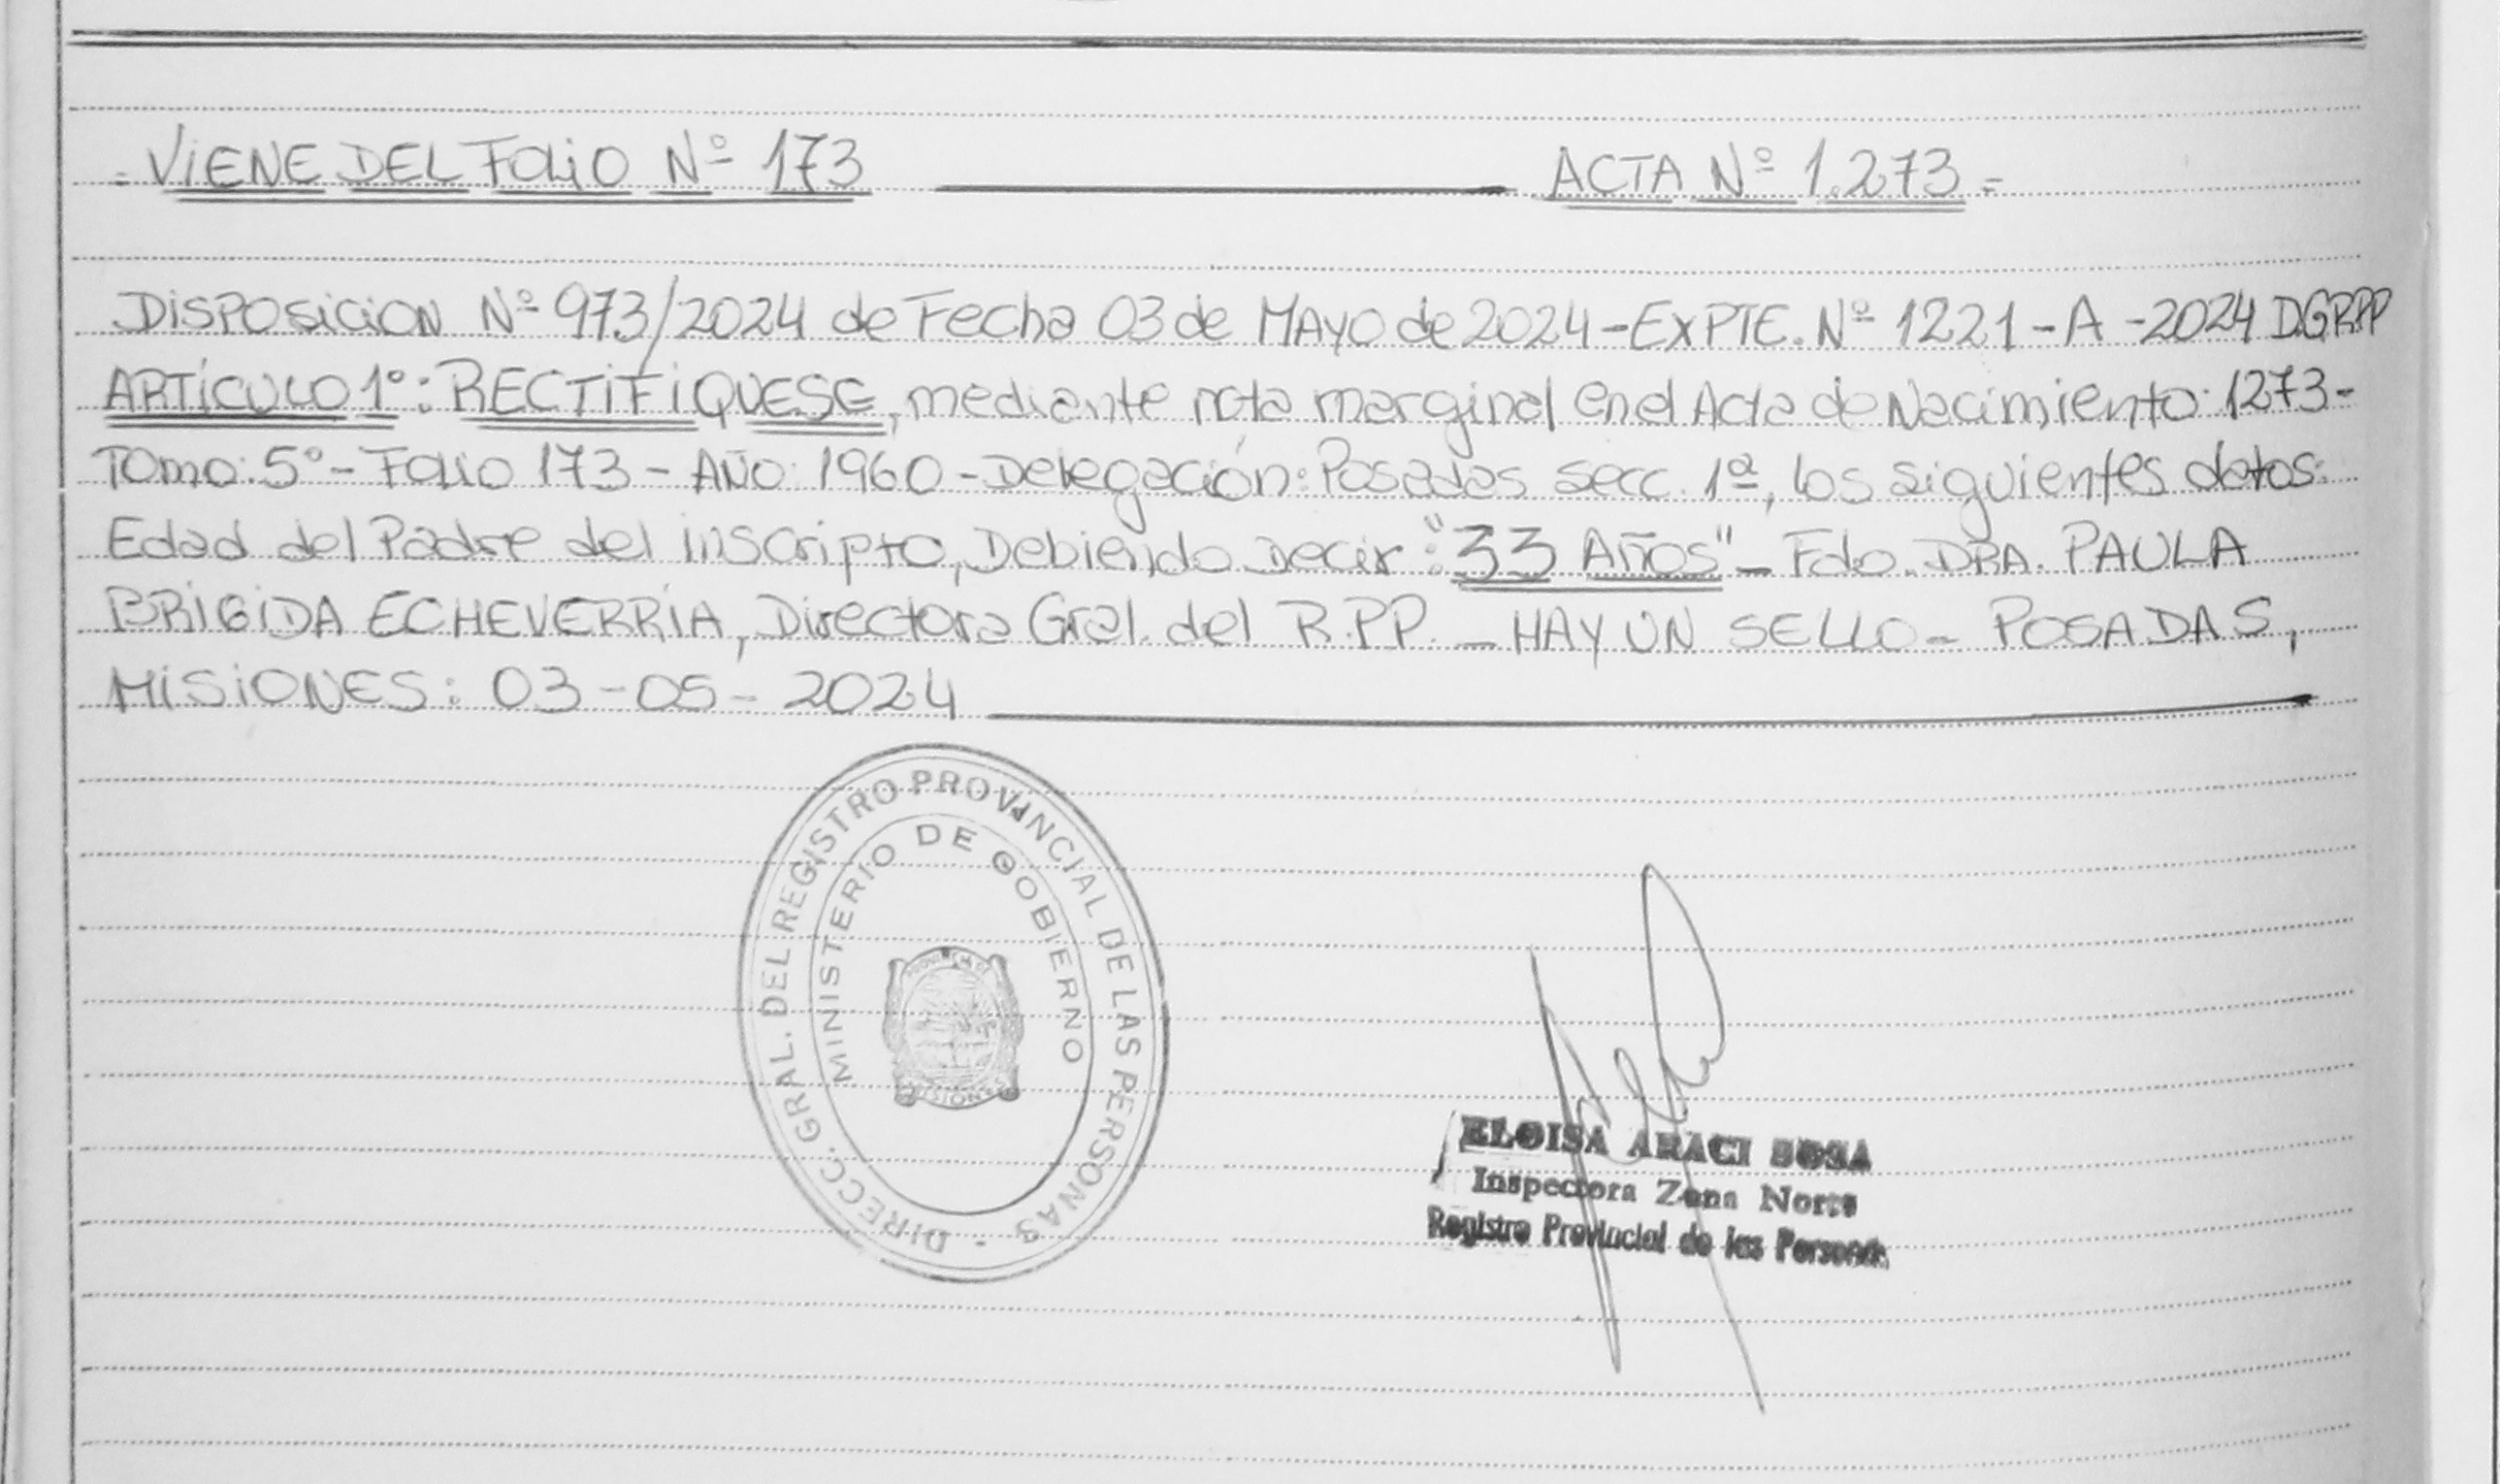 = VIENE DEL FOLIO Nº 173 ACTA Nº 1.273 =
DISPOSICION Nº 973/2024 de Fecha 03 de MAYO de 2024 - EXPTE. Nº 1221 - A - 2024 D.G.R.P.P
ARTÍCULO 1º: RECTIFIQUESE, mediante nota marginal en el Acta de Nacimiento: 1273-
TOMO: 5º - Folio 173 - AÑO: 1960 - Delegación: Posadas secc. 1ª, los siguientes datos:
Edad del Padre del inscripto, Debiendo Decir: "33 Años" - Fdo. DRA. PAULA
BRIGIDA ECHEVERRIA, Directora Gral. del R.P.P. - HAY UN SELLO - POSADAS,
MISIONES: 03-05-2024
DIRECC. GRAL. DEL REGISTRO PROVINCIAL DE LAS PERSONAS -
MINISTERIO DE GOBIERNO
MISIONES
ELOISA ARACI SOSA
Inspectora Zona Norte
Registro Provincial de las Personas